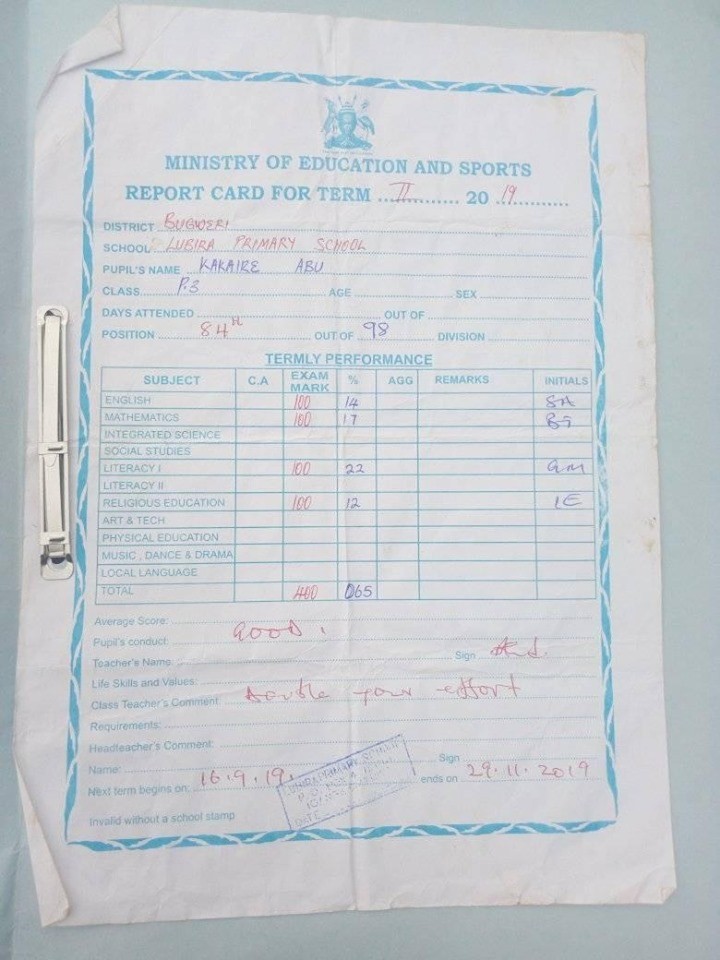 MINISTRY OF EDUCATION AND SPORTS
REPORT CARD FOR TERM II 20 19
DISTRICT BUGWERI
SCHOOL LUBIRA PRIMARY SCHOOL
PUPIL'S NAME KAKAIRE ABU
CLASS P.3 AGE SEX
DAYS ATTENDED OUT OF
POSITION 84th OUT OF 98 DIVISION
TERMLY PERFORMANCE
SUBJECT C.A EXAM MARK % AGG REMARKS INITIALS
ENGLISH 100 14 SA
MATHEMATICS 100 17
INTEGRATED SCIENCE
SOCIAL STUDIES
LITERACY I 100 22 GM
LITERACY II
RELIGIOUS EDUCATION 100 12 IE
ART & TECH
PHYSICAL EDUCATION
MUSIC , DANCE & DRAMA
LOCAL LANGUAGE
TOTAL 400 065
Average Score:
Pupil's conduct: Good.
Teacher's Name: Sign
Life Skills and Values:
Class Teacher's Comment: Double your effort
Requirements:
Headteacher's Comment:
Name: Sign
Next term begins on: 16.9.19. ends on 29.11.2019
LUBIRA PRIMARY SCHOOL
DATE
Invalid without a school stamp